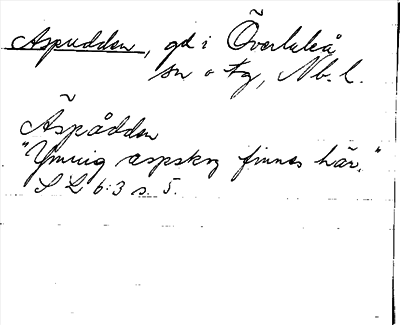 Aspudden, gd i Överluleå
sn o tg, Nb. l.
Äspådden
"Ymnig aspskog finnes här."
S L 6:3 s. 5.